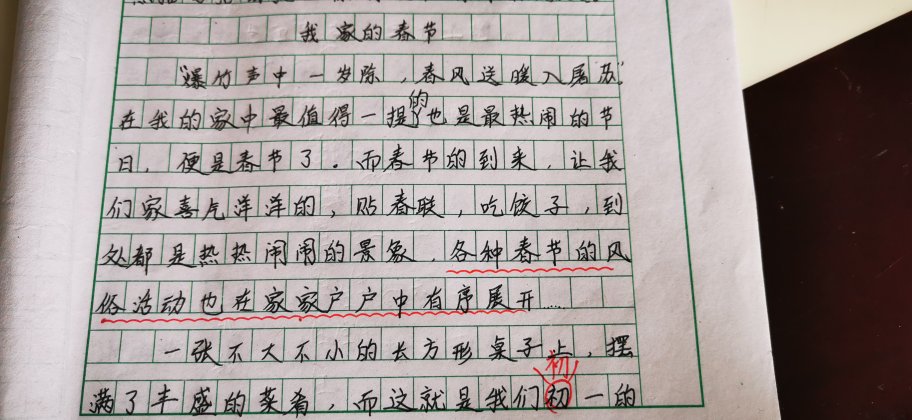 我家的春节
“爆竹声中一岁除，春风送暖入屠苏”
在我的家中最值得一提的也是最热闹的节
日，便是春节了。而春节的到来，让我
们家喜气洋洋的，贴春联，吃饺子，到
处都是热热闹闹的景象，各种春节的风
俗活动也在家家户户中有序展开……
一张不大不小的长方形桌子上，摆
初
满了丰盛的菜肴，而这就是我们初一的